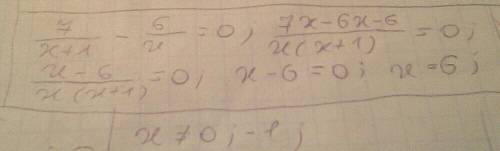 7/(x+1) - 6/x = 0; (7x-6x-6)/(x(x+1)) = 0;
(x-6)/(x(x+1)) = 0; x-6=0; x=6;
x≠0; -1;